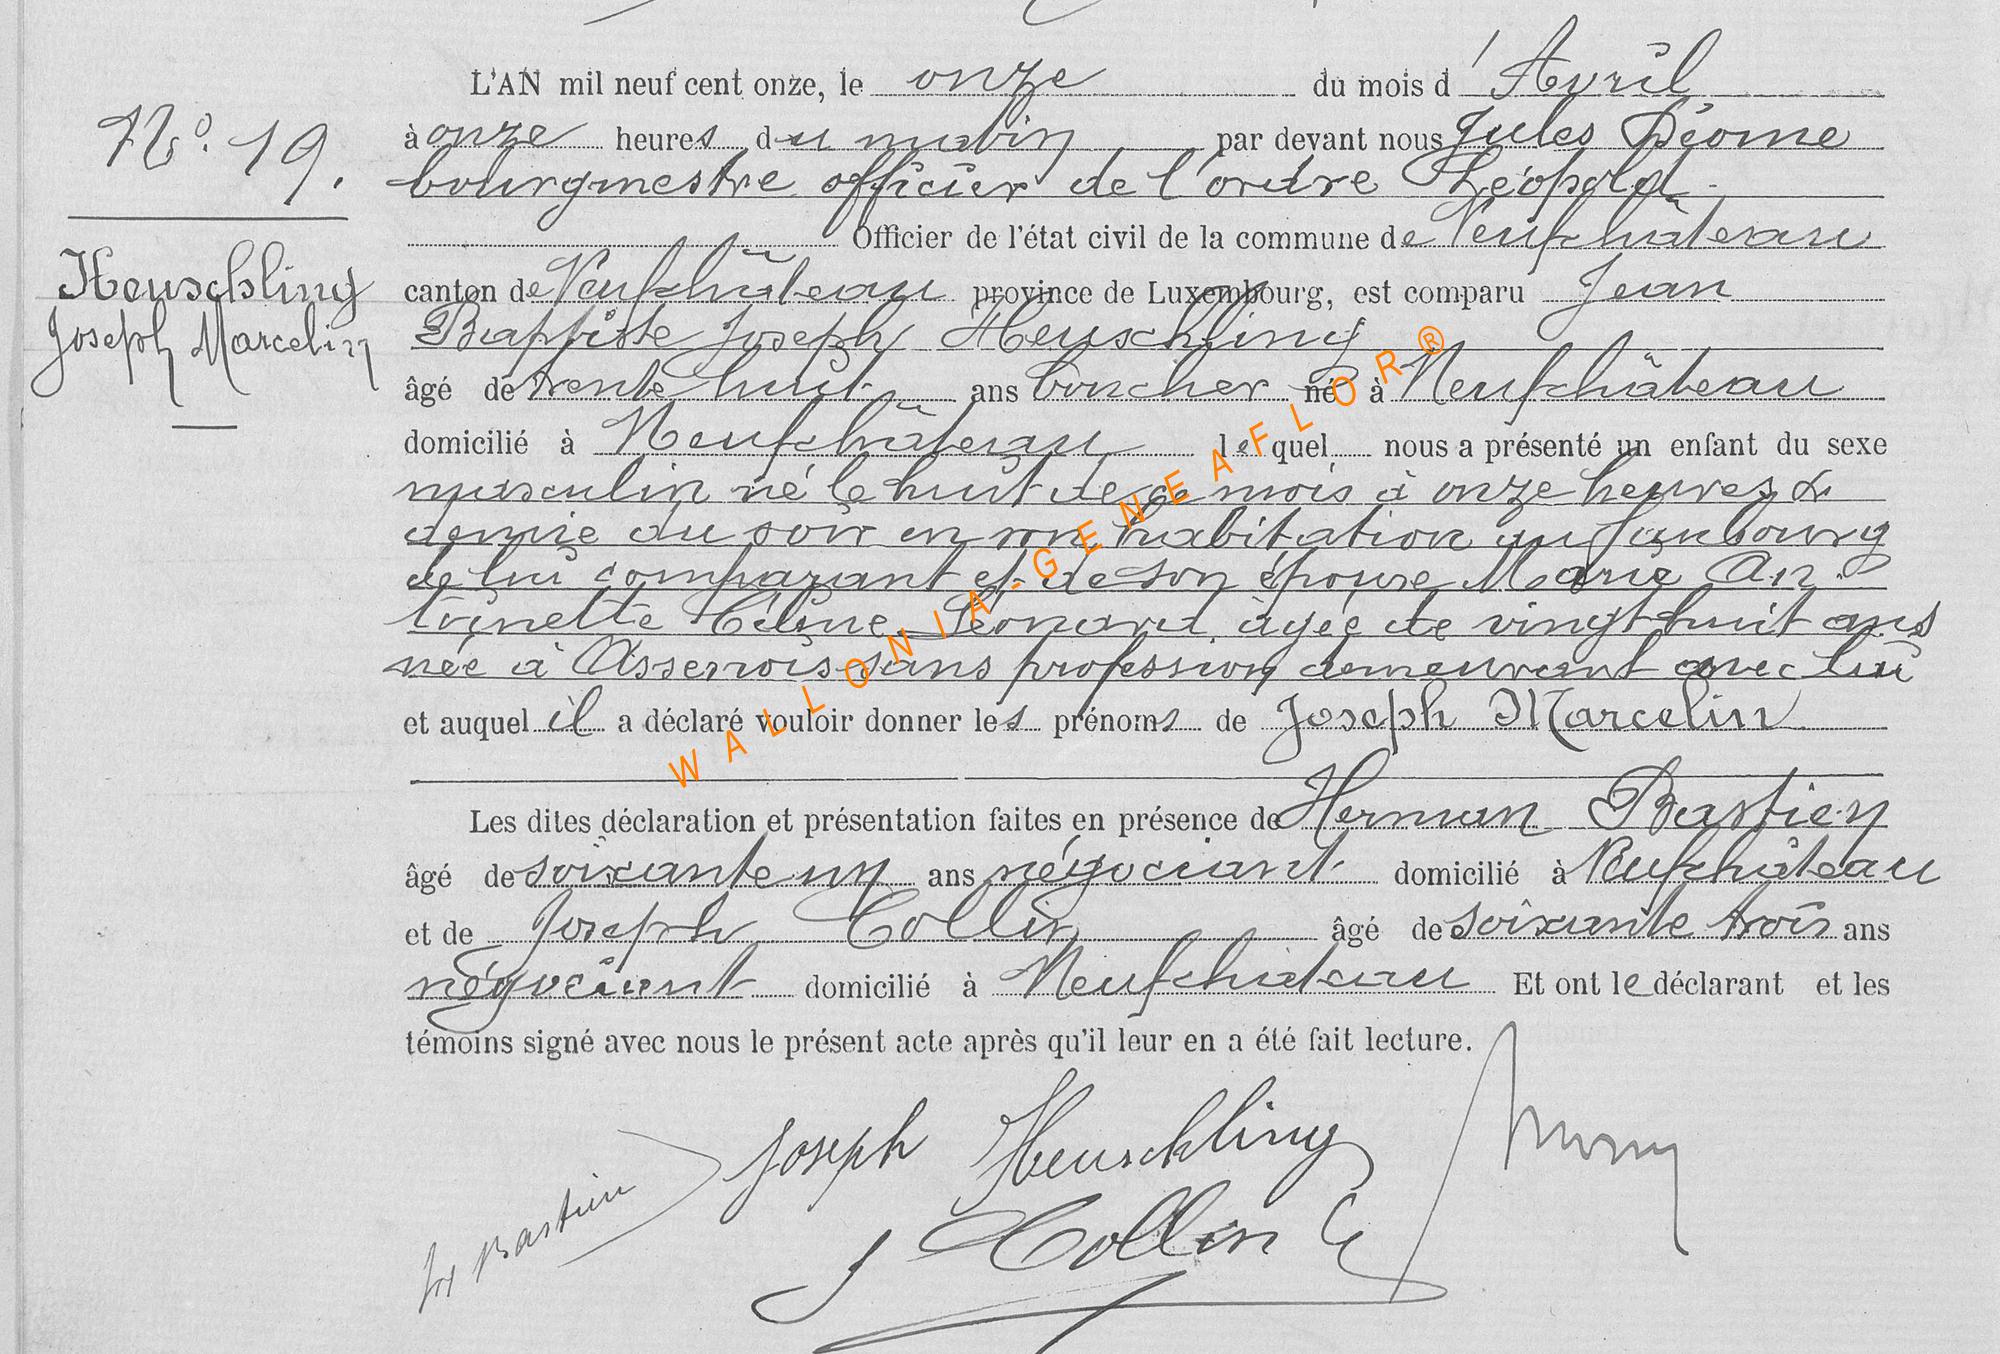 L'AN mil neuf cent onze, le onze du mois d'Avril
N° 19.
à onze heures du matin par devant nous Jules Déome
bourgmestre officier de l'ordre Léopold
Officier de l'état civil de la commune de Neufchâteau
Heuschling
Joseph Marcelin
canton de Neufchâteau province de Luxembourg, est comparu Jean
Baptiste Joseph Heuschling
âgé de trente huit ans boucher né à Neufchâteau
domicilié à Neufchâteau lequel nous a présenté un enfant du sexe
masculin né le huit de ce mois à onze heures &
demie du soir en son habitation au faubourg
de lui comparant et de son épouse Marie An
toinette Céline Léonard, âgée de vingt huit ans
née à Assenois sans profession demeurant avec lui
et auquel il a déclaré vouloir donner les prénoms de Joseph Marcelin
Les dites déclaration et présentation faites en présence de Herman Bastien
âgé de soixante un ans négociant domicilié à Neufchâteau
et de Joseph Collin âgé de soixante trois ans
négociant domicilié à Neufchâteau Et ont le déclarant et les
témoins signé avec nous le présent acte après qu'il leur en a été fait lecture.
Joseph Heuschling
Bastien
J Collin
WALLONIA-GENEAFLOR®